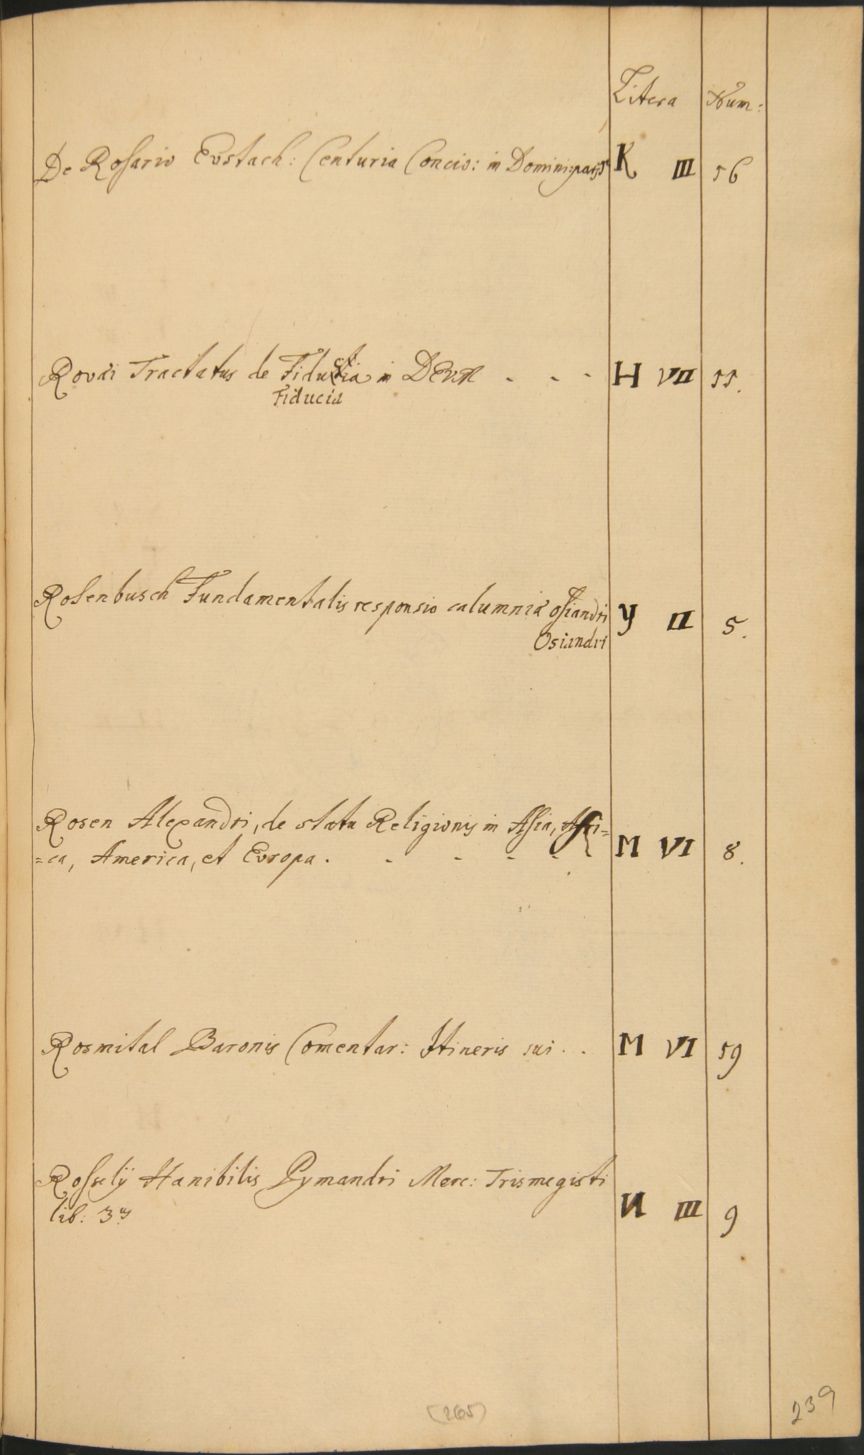 Litera Num:
De Rosario Eustach: Centuria Concio: in K III 56
Rovai Tractatus de in DEUM - - - H VII 55.
Fiducia
Rosenbusch Fundamentalis responsio calumniæ Osiandri Y II 5.
Osiandri
Rosen Alexandri, de statu Religionis in Asia, Afri=
=ca, America, et Europa. - - - - M VI 8.
Rosmital Baronis Comentar: Itineris sui . . M VI 59
Roselij Hanibilis Pymandri Merc: Trismegisti
lib: 3us N III 9
(265)
239